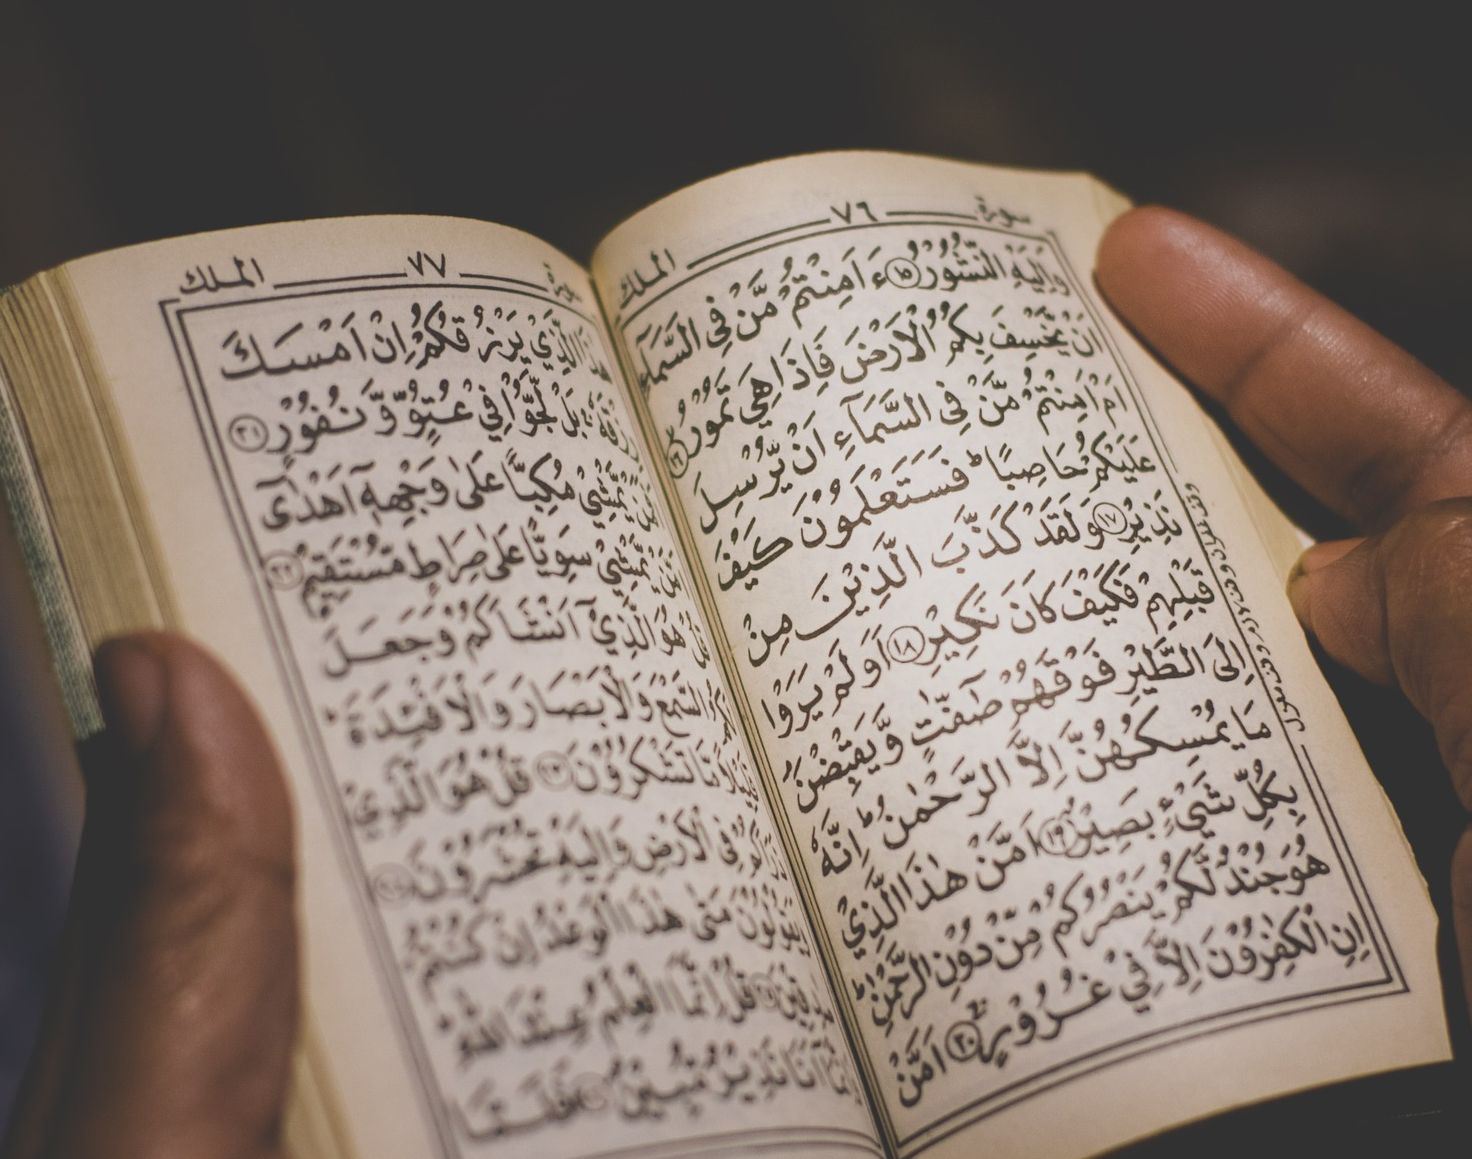 سورة ٧٦ الملك
وَاِلَيْهِ النُّشُوْرُ ﴿١٥﴾ ءَاَمِنْتُمْ مَّنْ فِي السَّمَآءِ
اَنْ يَّخْسِفَ بِكُمُ الْاَرْضَ فَاِذَا هِيَ تَمُوْرُ ﴿١٦﴾
اَمْ اَمِنْتُمْ مَّنْ فِي السَّمَآءِ اَنْ يُّرْسِلَ
عَلَيْكُمْ حَاصِبًا ط فَسَتَعْلَمُوْنَ كَيْفَ
نَذِيْرِ ﴿١٧﴾ وَلَقَدْ كَذَّبَ الَّذِيْنَ مِنْ
قَبْلِهِمْ فَكَيْفَ كَانَ نَكِيْرِ ﴿١٨﴾ اَوَلَمْ يَرَوْا
اِلَى الطَّيْرِ فَوْقَهُمْ صٰٓفّٰتٍ وَّيَقْبِضْنَ
مَا يُمْسِكُهُنَّ اِلَّا الرَّحْمٰنُ ط اِنَّهٗ
بِكُلِّ شَيْءٍۭ بَصِيْرٌ ﴿١٩﴾ اَمَّنْ هٰذَا الَّذِيْ
هُوَ جُنْدٌ لَّكُمْ يَنْصُرُكُمْ مِّنْ دُوْنِ الرَّحْمٰنِ ط
اِنِ الْكٰفِرُوْنَ اِلَّا فِيْ غُرُوْرٍ ﴿٢٠﴾ اَمَّنْ
سورة ٧٧ الملك
هٰذَا الَّذِيْ يَرْزُقُكُمْ اِنْ اَمْسَكَ
رِزْقَهٗ بَلْ لَّجُّوْا فِيْ عُتُوٍّ وَّنُفُوْرٍ ﴿٢١﴾
يَّمْشِيْ مُكِبًّا عَلٰى وَجْهِهٖٓ اَهْدٰٓى
يَّمْشِيْ سَوِيًّا عَلٰى صِرَاطٍ مُّسْتَقِيْمٍ ﴿٢٢﴾
قُلْ هُوَ الَّذِيْٓ اَنْشَاَكُمْ وَجَعَلَ
لَكُمُ السَّمْعَ وَالْاَبْصَارَ وَالْاَفْئِدَةَ ط
قَلِيْلًا مَّا تَشْكُرُوْنَ ﴿٢٣﴾ قُلْ هُوَ الَّذِيْ
ذَرَاَكُمْ فِي الْاَرْضِ وَاِلَيْهِ تُحْشَرُوْنَ ﴿٢٤﴾
وَيَقُوْلُوْنَ مَتٰى هٰذَا الْوَعْدُ اِنْ كُنْتُمْ
صٰدِقِيْنَ ﴿٢٥﴾ قُلْ اِنَّمَا الْعِلْمُ عِنْدَ اللّٰهِ
وَاِنَّمَآ اَنَا نَذِيْرٌ مُّبِيْنٌ ﴿٢٦﴾ فَلَمَّا